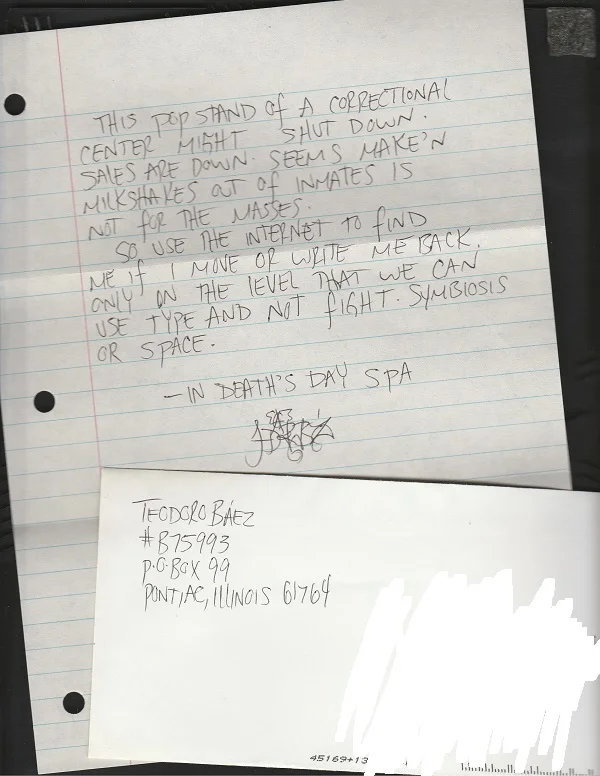 THIS POP STAND OF A CORRECTIONAL
CENTER MIGHT SHUT DOWN.
SALES ARE DOWN. SEEMS MAKE'N
MILKSHAKES OUT OF INMATES IS
NOT FOR THE MASSES.
SO USE THE INTERNET TO FIND
ME IF I MOVE OR WRITE ME BACK.
ONLY ON THE LEVEL THAT WE CAN
USE TYPE AND NOT FIGHT. SYMBIOSIS
OR SPACE.
- IN DEATH'S DAY SPA
TEODORO BÁEZ
#B75993
P.O. BOX 99
PONTIAC, ILLINOIS 61764
45169+13